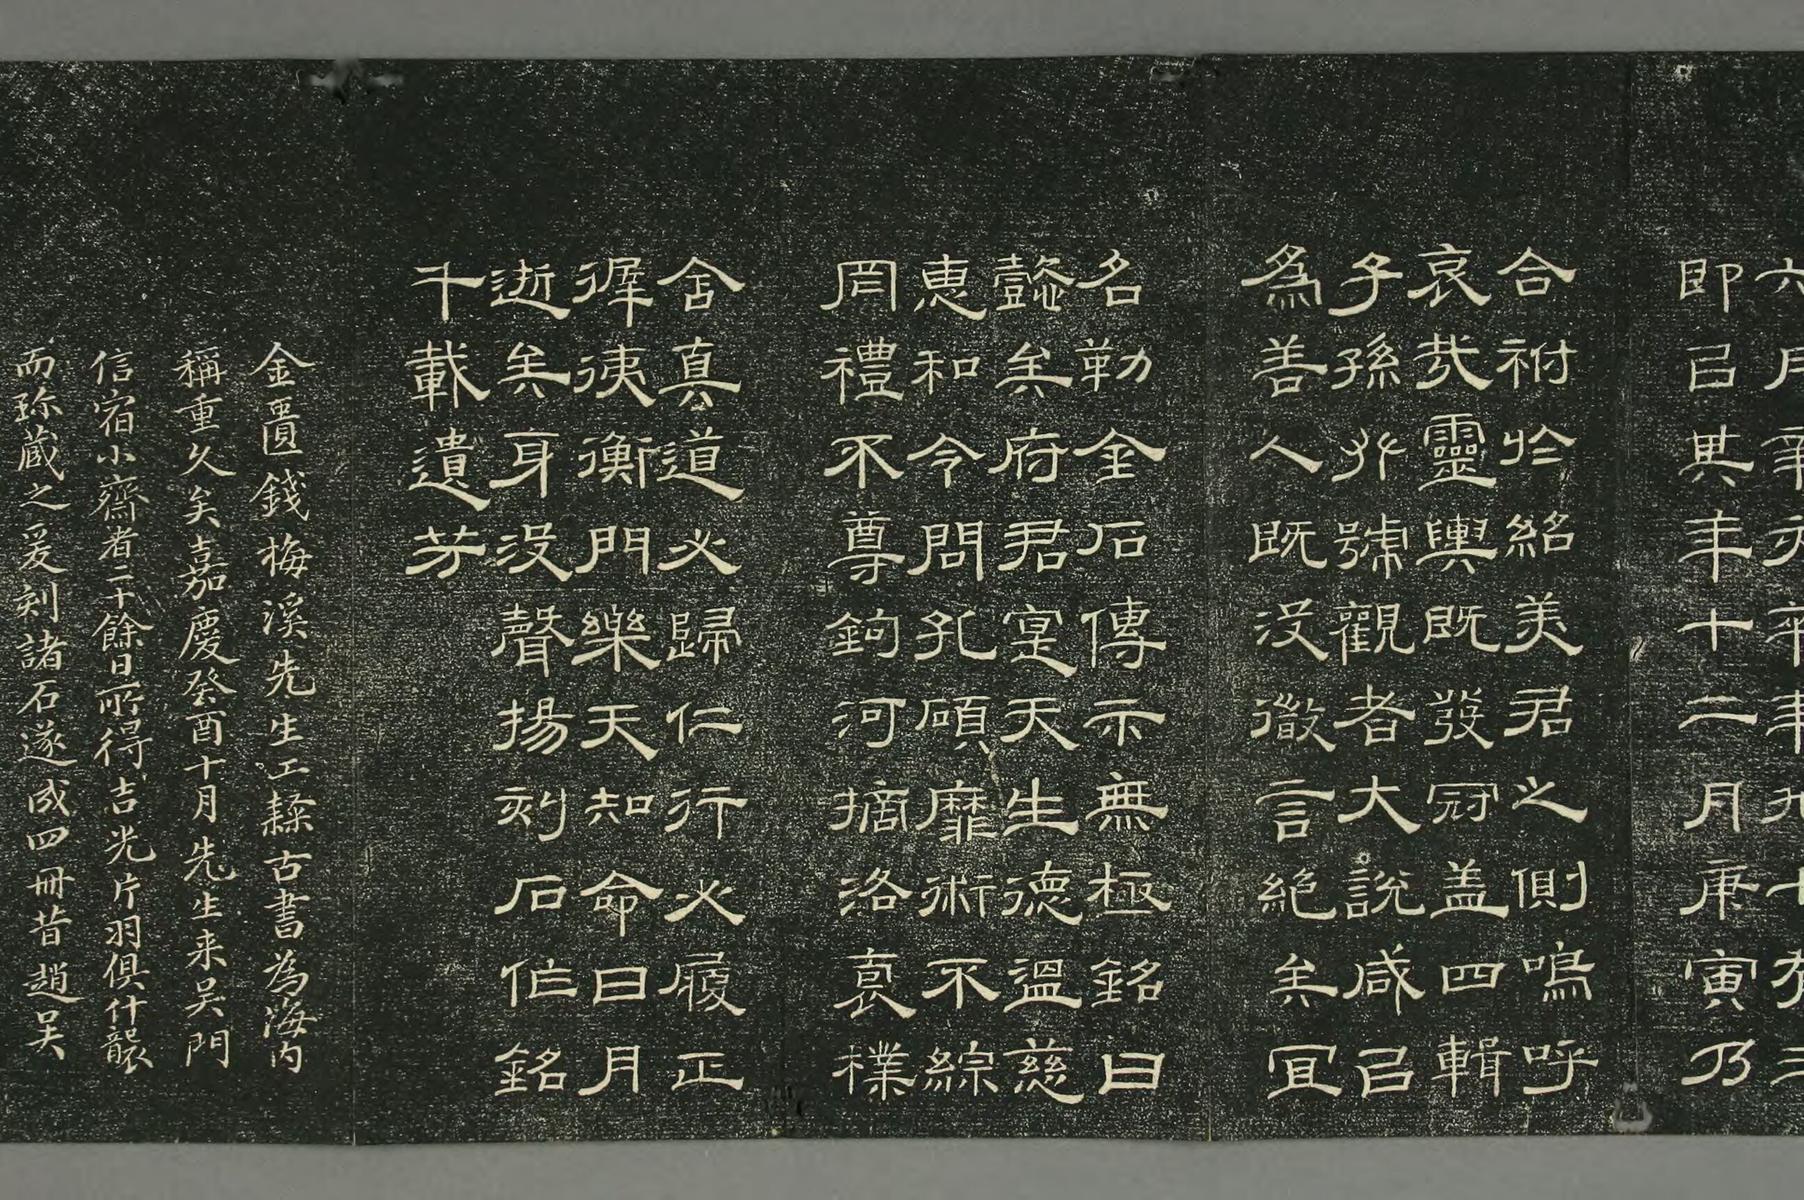 即已其年十二月庚寅乃
合祔於絡美君之側嗚呼
哀哉靈輿既發冠盖四輯
子孫號觀者大說咸已
為善人既没徽言絕矣宜
名勒金石傳示無極銘曰
懿矣府君寔天生德溫慈
惠和令問孔碩靡術不綜
罔禮不尊鉤河摘洛裒檏
含真道必歸仁行必履正
徲徺衡門樂天知命日月
逝矣身没聲揚刻石作銘
千載遺芳
金匱錢梅溪先生工隸古書為海内
稱重久矣嘉慶癸酉十月先生来吴門
信宿小齋者二十餘日所得吉光片羽俱什襲
而珎蔵之爰刻諸石遂成四冊昔趙吴